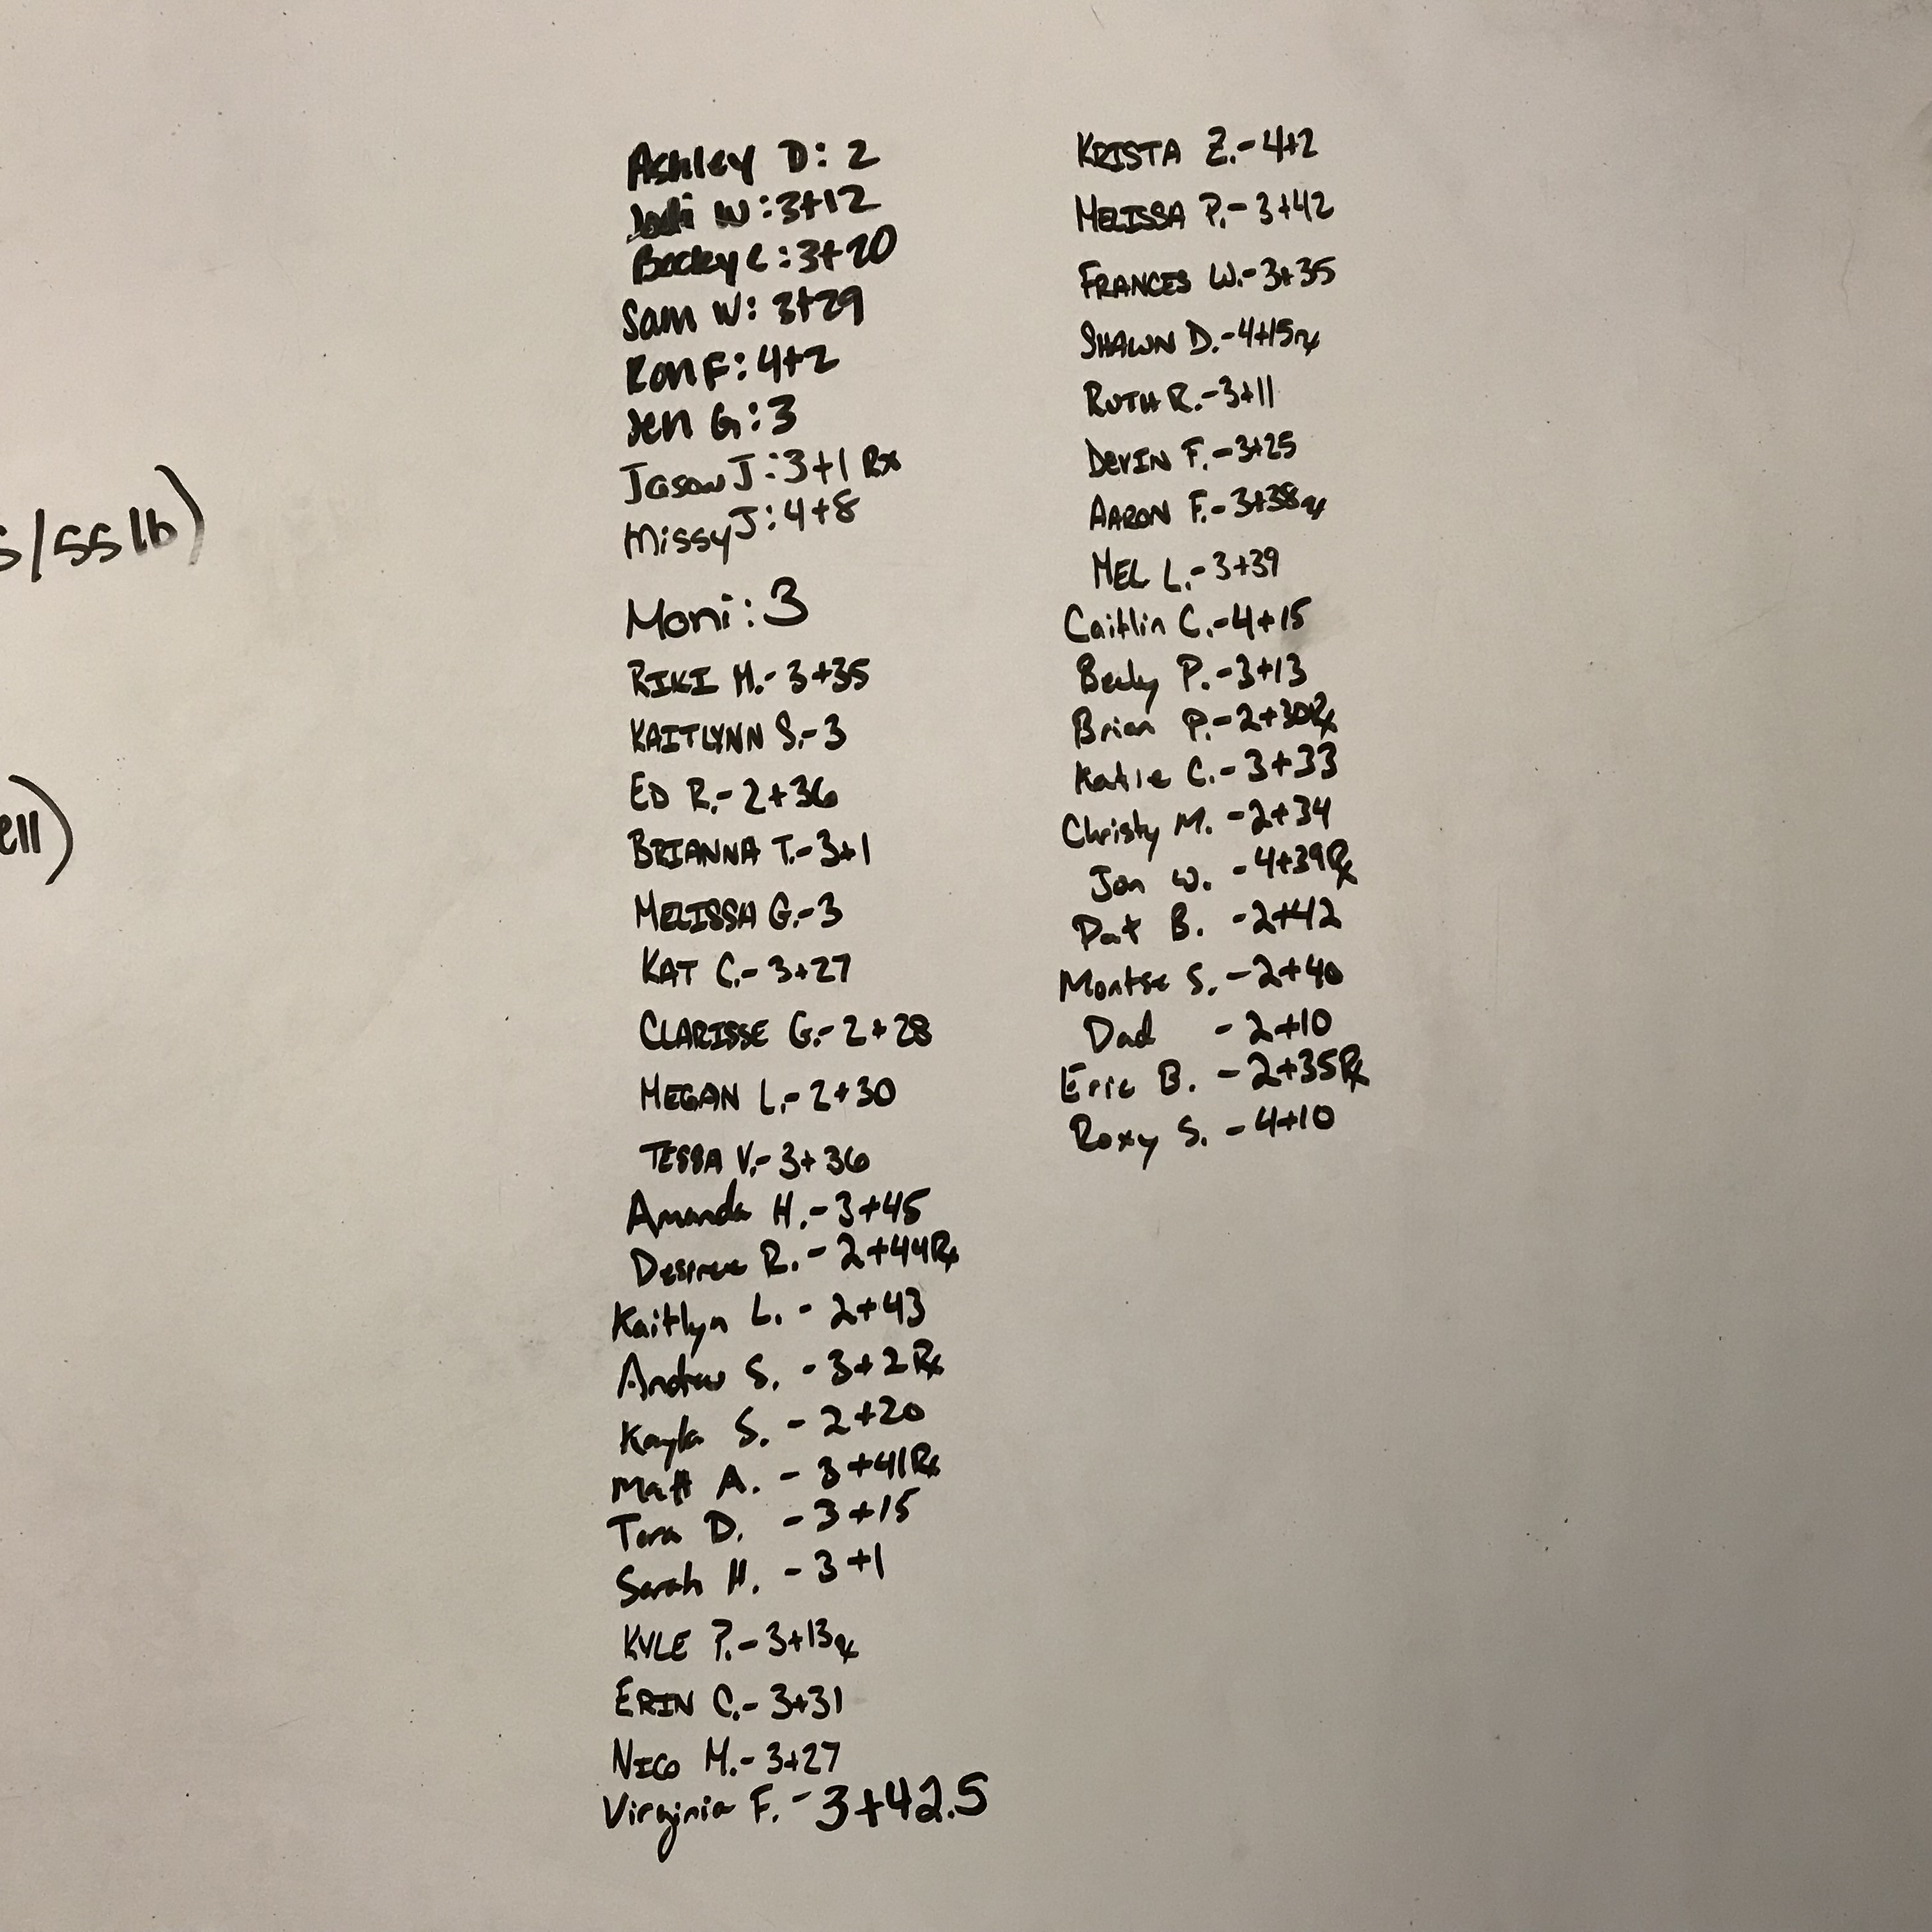 s/55lb)
ell)
Ashley D: 2
Jodi W: 3+12
Becky C: 3+20
Sam W: 3+29
Ron F: 4+2
Jen G: 3
Jason J: 3+1 Rx
Missy J: 4+8
Moni: 3
RIKI M.- 3+35
KAITLYNN S.- 3
ED R.- 2+36
BRIANNA T.- 3+1
MELISSA G.- 3
KAT C.- 3+27
CLARISSE G.- 2+28
MEGAN L.- 2+30
TESSA V.- 3+36
Amanda H.- 3+45
Desiree R. - 2+44Rx
Kaitlyn L. - 2+43
Andrew S. - 3+2Rx
Kayla S. - 2+20
Matt A. - 3+41Rx
Tara D. - 3+15
Sarah H. - 3+1
KYLE P.- 3+13Rx
ERIN C.- 3+31
NICO M.- 3+27
Virginia F. - 3+42.5
KRISTA Z.- 4+2
MELISSA P.- 3+42
FRANCES W.- 3+35
SHAWN D.- 4+15Rx
RUTH R.- 3+11
DEVIN F.- 3+25
AARON F.- 3+38Rx
MEL L.- 3+39
Caitlin C.- 4+15
Becky P.- 3+13
Brian P.- 2+30Rx
Katie C.- 3+33
Christy M. - 2+34
Jon W. - 4+39Rx
Pat B. - 2+42
Montse S. - 2+40
Dad - 2+10
Eric B. - 2+35Rx
Roxy S. - 4+10